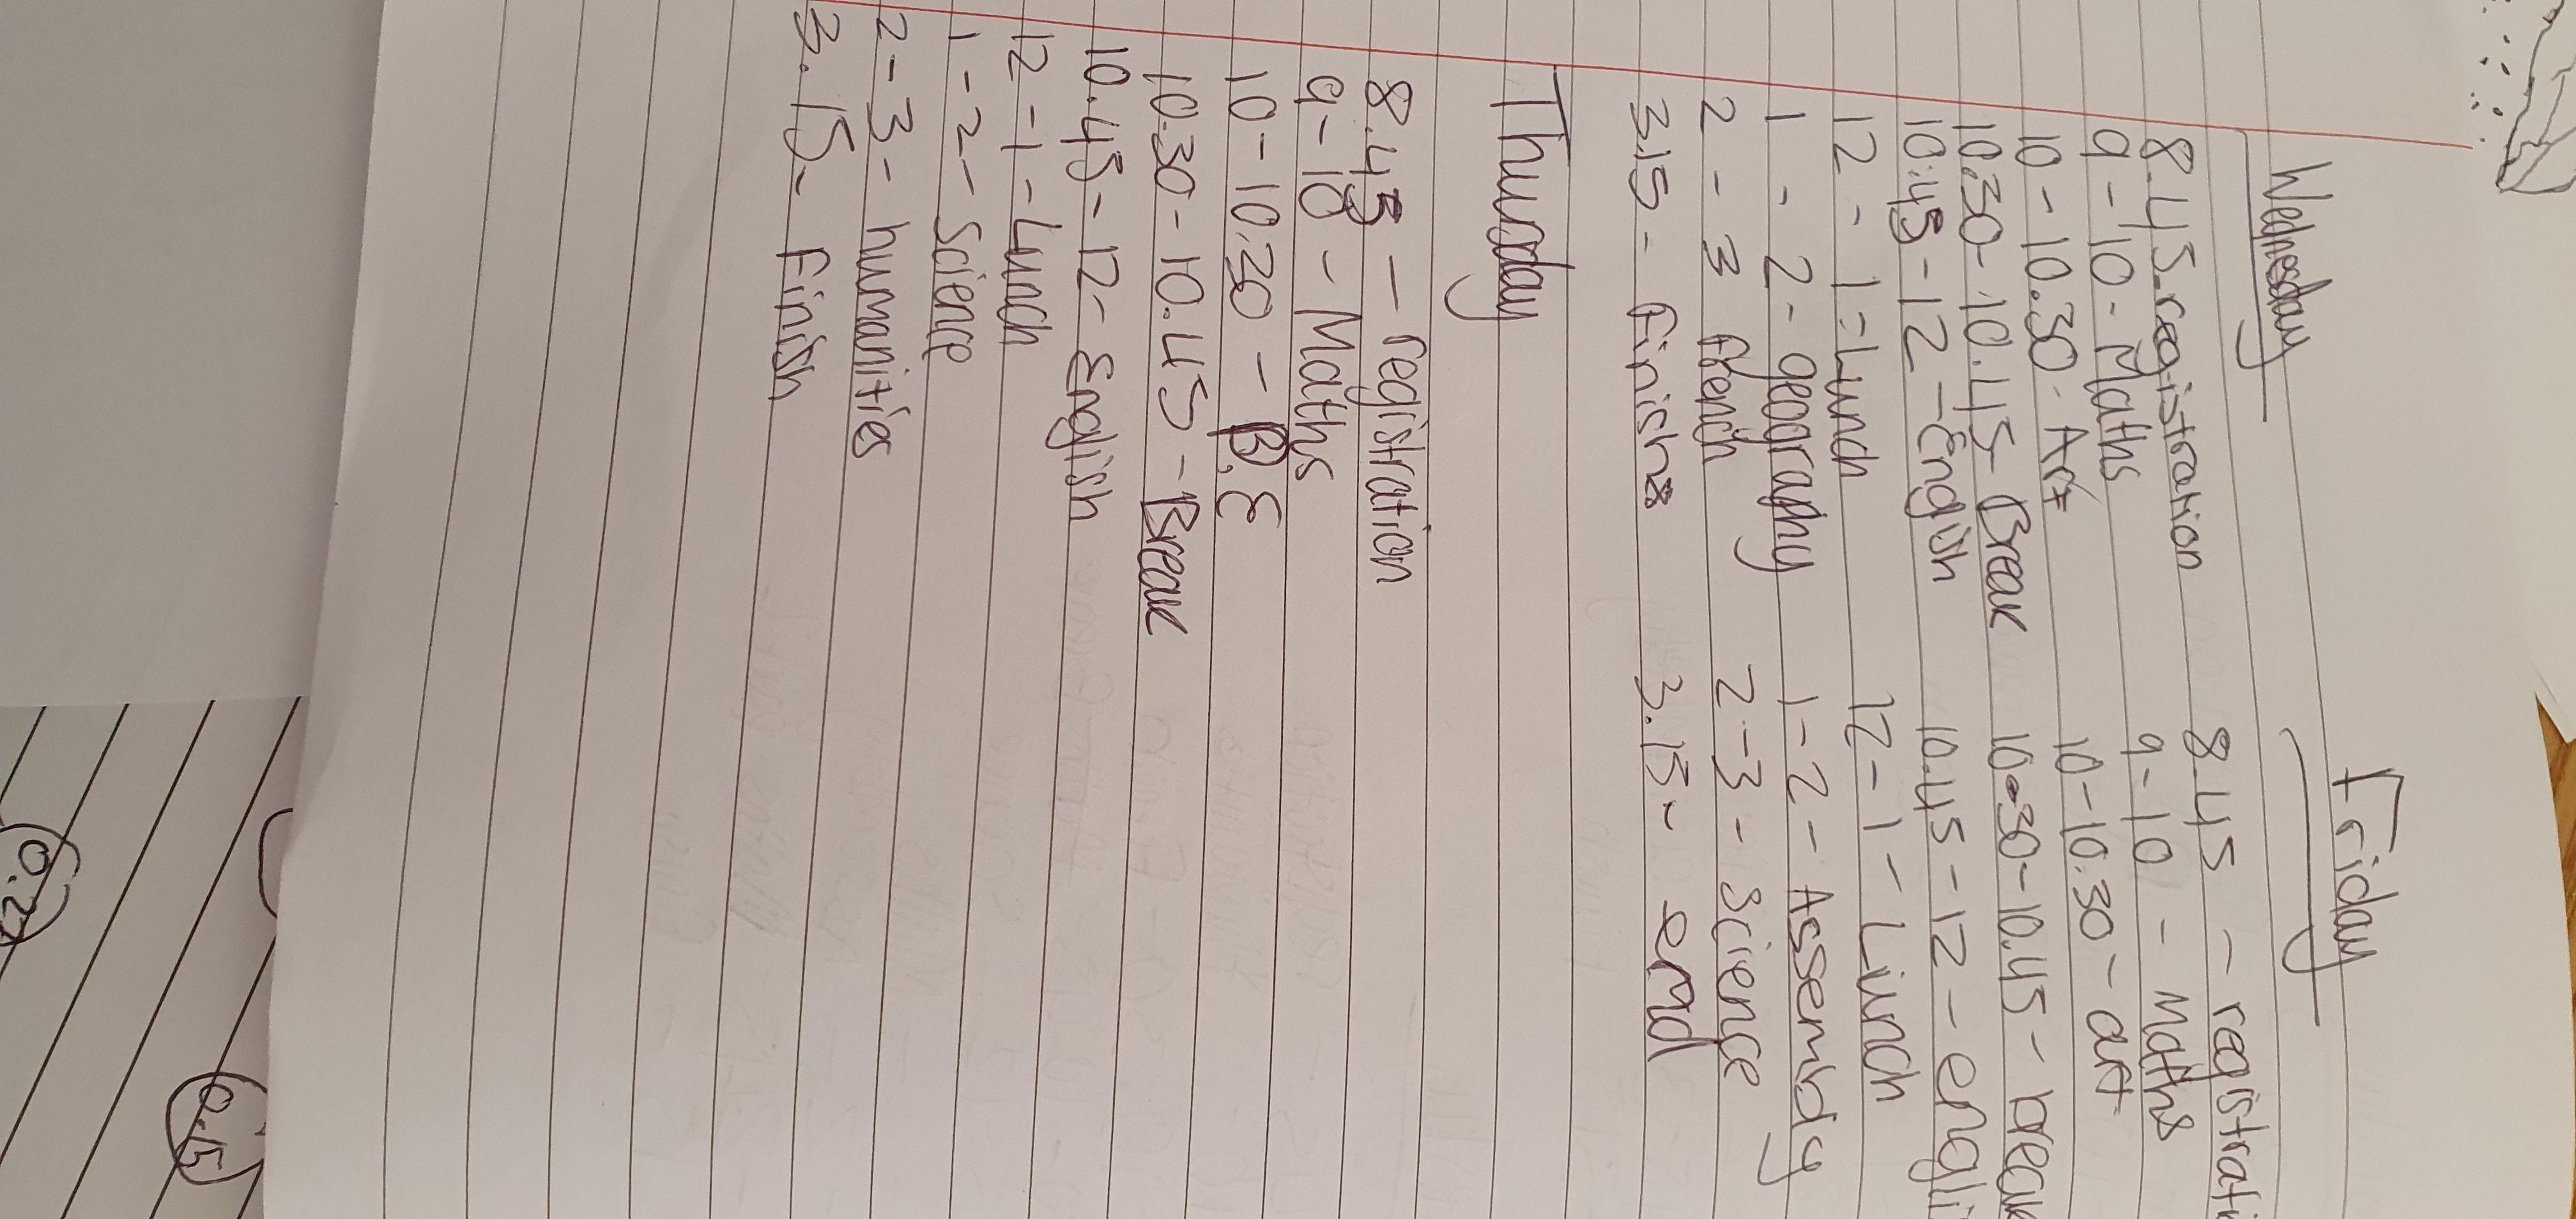 Wednesday
8.45 registration
9-10- Maths
10-10.30- Art
10.30-10.45- Break
10:45-12-English
12-1= Lunch
1-2- geography
2-3 french
3.15- finish
Thursday
8.45 - registration
9-10 - Maths
10-10.30 - P.E
10.30-10.45- Break
10.45-12- English
12-1- Lunch
1-2- Science
2-3- humanities
3.15- Finish
Friday
8.45 - registrati
9-10 - Maths
10-10.30- art
10.30-10.45- break
10.45-12- engli
12-1- Lunch
1-2- Assembly
2-3- science
3.15- end
2.0
0.15